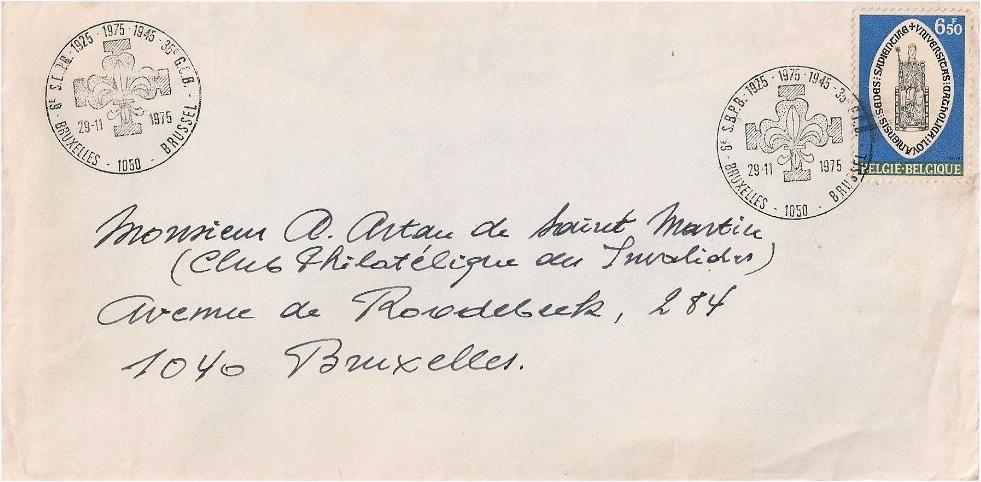 6E S.B.P.B. - 1925 - 1975 - 1945 - 35E G.C.B. -
29-11 1975
BRUXELLES - 1050 - BRUSSEL
6E S.B.P.B. - 1925 - 1975 - 1945 - 35E
29-11 1975
BRUXELLES - 1050 - BRUSSEL
6F50
SEDES : SAPIENTIAE + UNIVERSITAS : CATHOLICA : LOVANIENSIS
BELGIË-BELGIQUE
Monsieur A. Artan de Saint Martin
(Club Philatélique des Invalides)
Avenue de Roodebeek, 284
1040 Bruxelles.